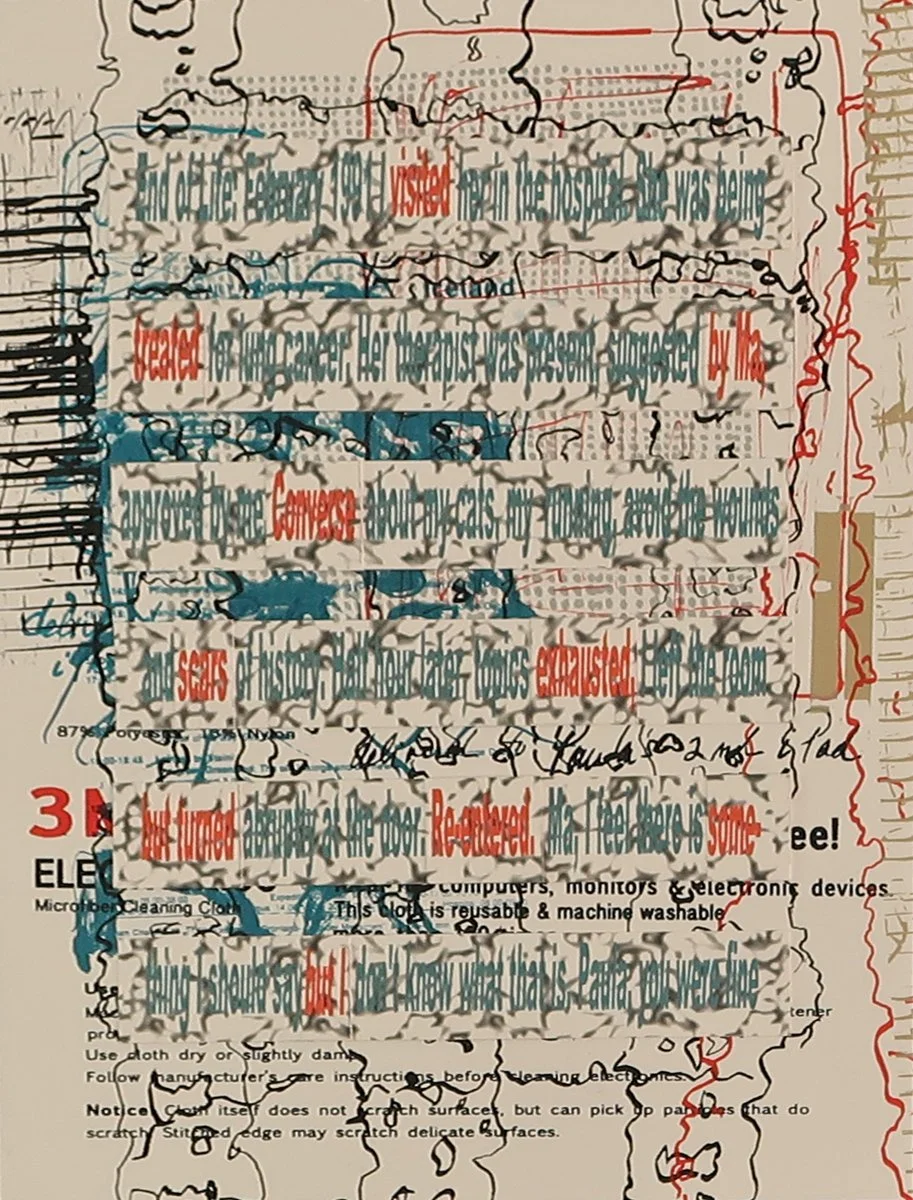 End of Life: February 1991 I visited her in the hospital. She was being
Iceland
treated for lung cancer. Her therapist was present, suggested by Ma,
approved by me. Converse about my cats, my running, avoid the wounds
and scars of history. Half hour later, topics exhausted, I left the room
87% Polyester, 13% Nylon
but turned abruptly at the door. Re-entered. Ma, I feel there is some-
3M ee!
ELEC computers, monitors & electronic devices.
Microfiber Cleaning Cloth This cloth is reusable & machine washable
thing I should say but I don't know what that is. Paula, you were fine
Use
tener
Use cloth dry or slightly damp
Follow manufacturer's care instructions before cleaning electronics.
Notice Cloth itself does not scratch surfaces, but can pick up particles that do
scratch. Stitched edge may scratch delicate surfaces.